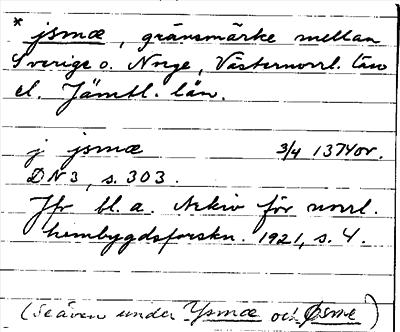 * jsmæ, gränsmärke mellan
Sverige o. Norge, Västernorrl. län
el. Jämtl. län.
j jsmæ 3/4 1374 or.
DN 3, s. 303.
Jfr bl. a. Arkiv för norrl.
hembygdsforskn. 1921, s. 4.
(se även under Ysmæ och Øsme)